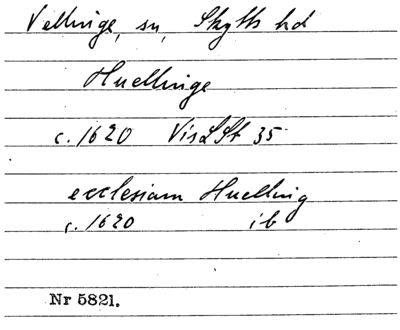 Vellinge, sn, Skytts hd
Huellinge
c. 1620 VisLSt 35
ecclesiam Huelling
c. 1620 ib
Nr 5821.